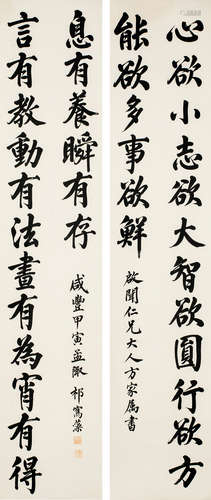 心欲小志欲大智欲圓行欲方
能欲多事欲鮮
啟聞仁兄大人方家属書
言有教動有法晝有為宵有得
息有養瞬有存
咸豐甲寅孟陬 祁寯藻